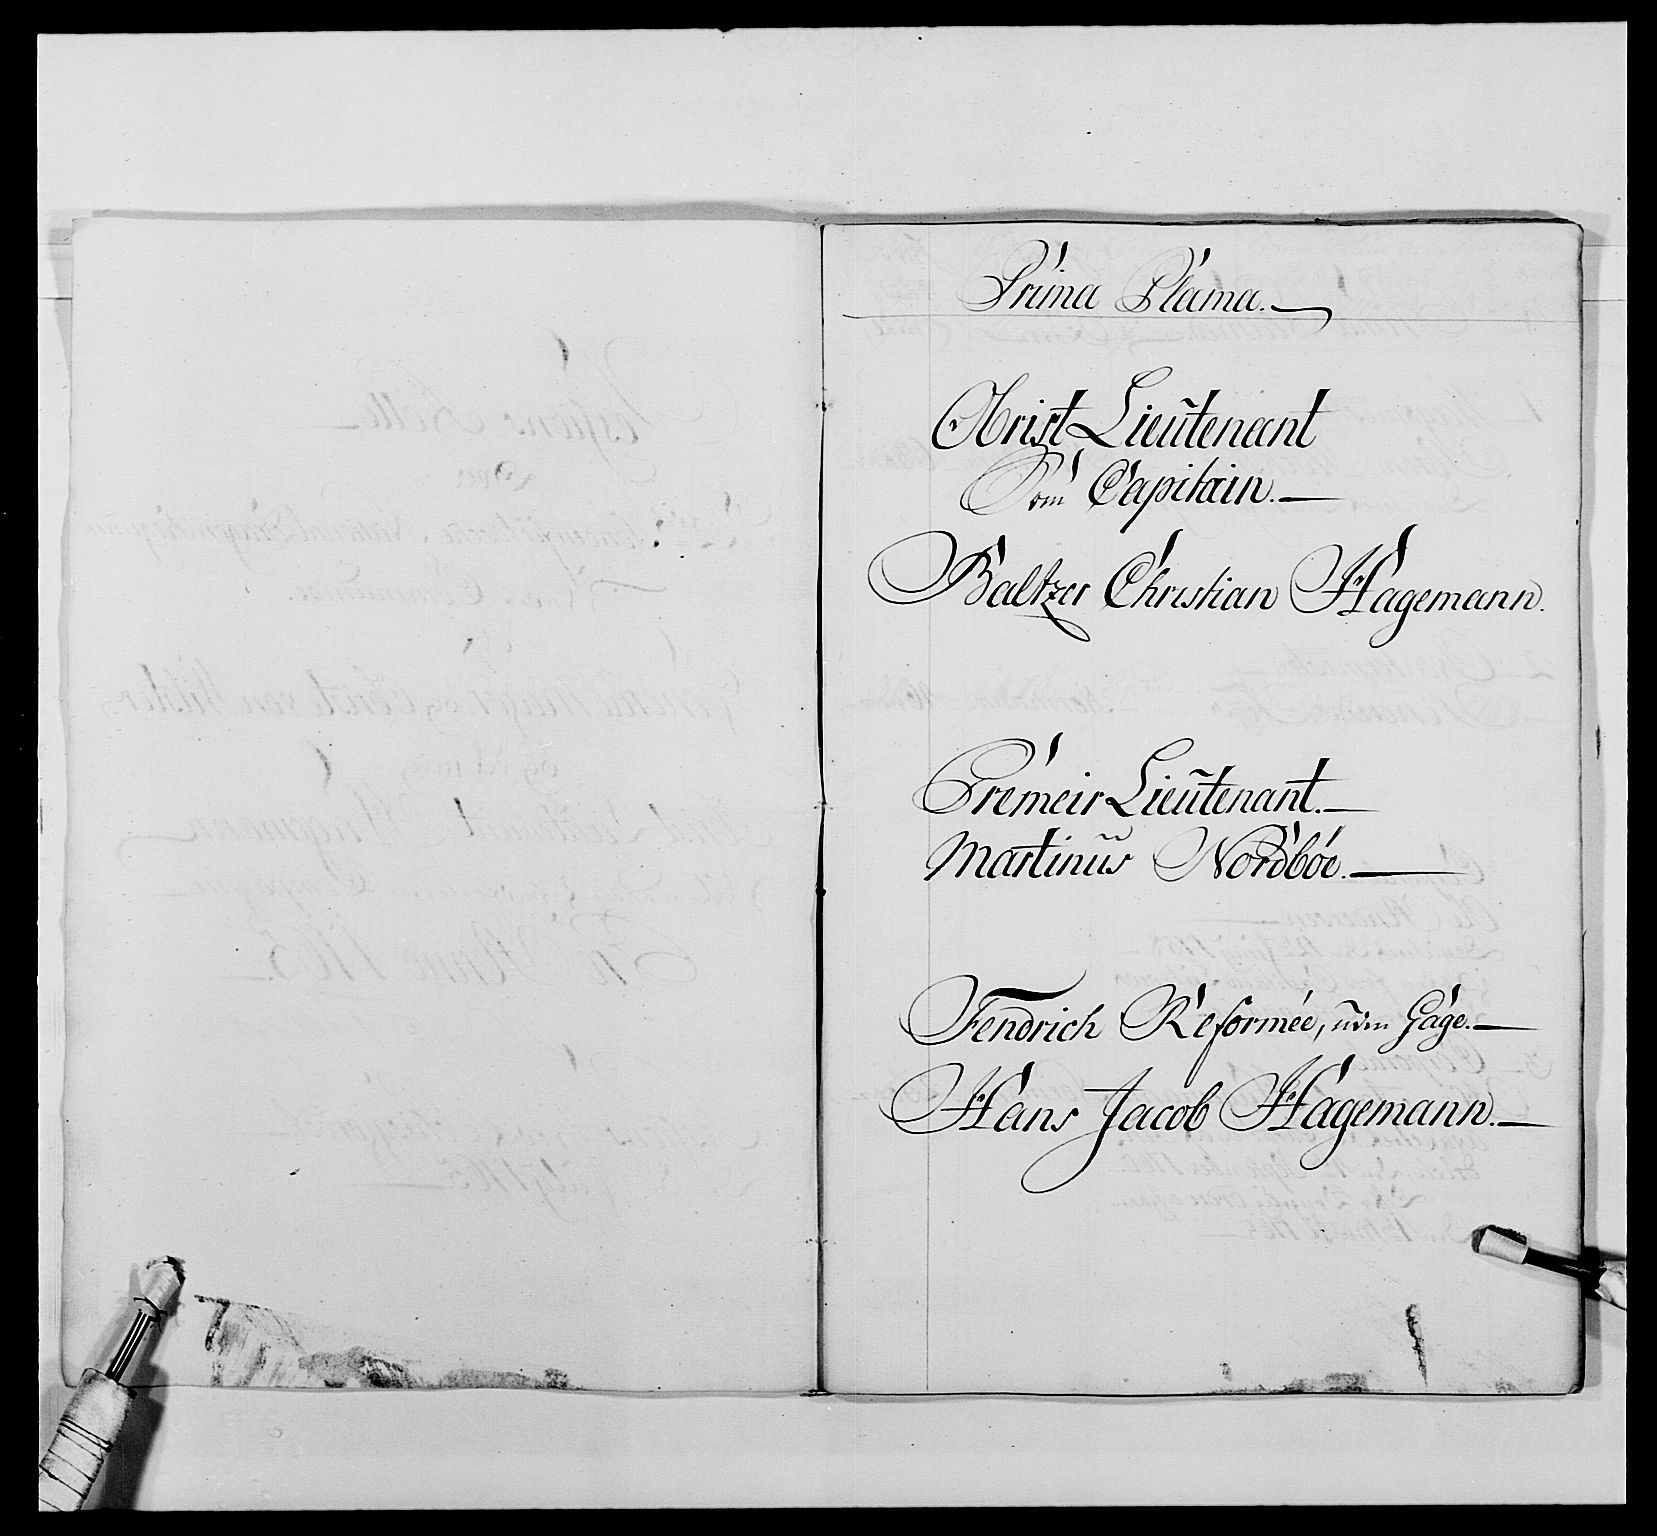 Prima Plama.
Obrist Lieutenant
Som Capitain.
Baltzer Christian Hagemann.
Premeir Lieutenant.
Martinus Nordbøe.
Fendrich Reformée, uden Gage.
Hans Jacob Hagemann.